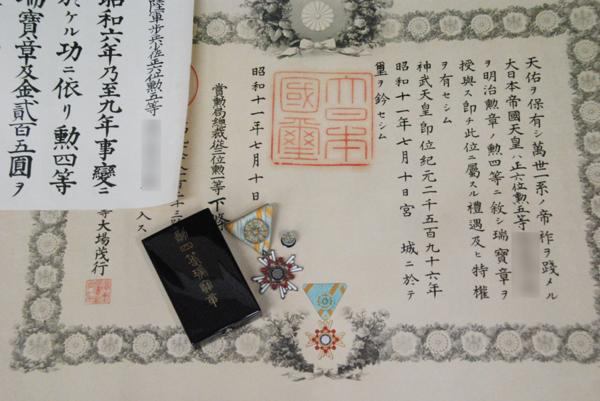 天佑ヲ保有シ萬世一系ノ帝祚ヲ踐メル
大日本帝國天皇ハ正六位勲五等
ヲ明治勲章ノ勲四等ニ敘シ瑞寶章ヲ
授與ス即チ此位ニ屬スル禮遇及ヒ特權
ヲ有セシム
神武天皇即位紀元二千五百九十六年
昭和十一年七月十日宮城ニ於テ
璽ヲ鈐セシム
大日本
國璽
昭和十一年七月十日
賞勲局總裁從三位勲一等下條
入ス
等大場茂行
陸軍步兵少佐正六位勲五等
昭和六年乃至九年事變ニ
於ケル功ニ依リ勲四等
瑞寶章及金貳百五圓ヲ
勲四等瑞寶章